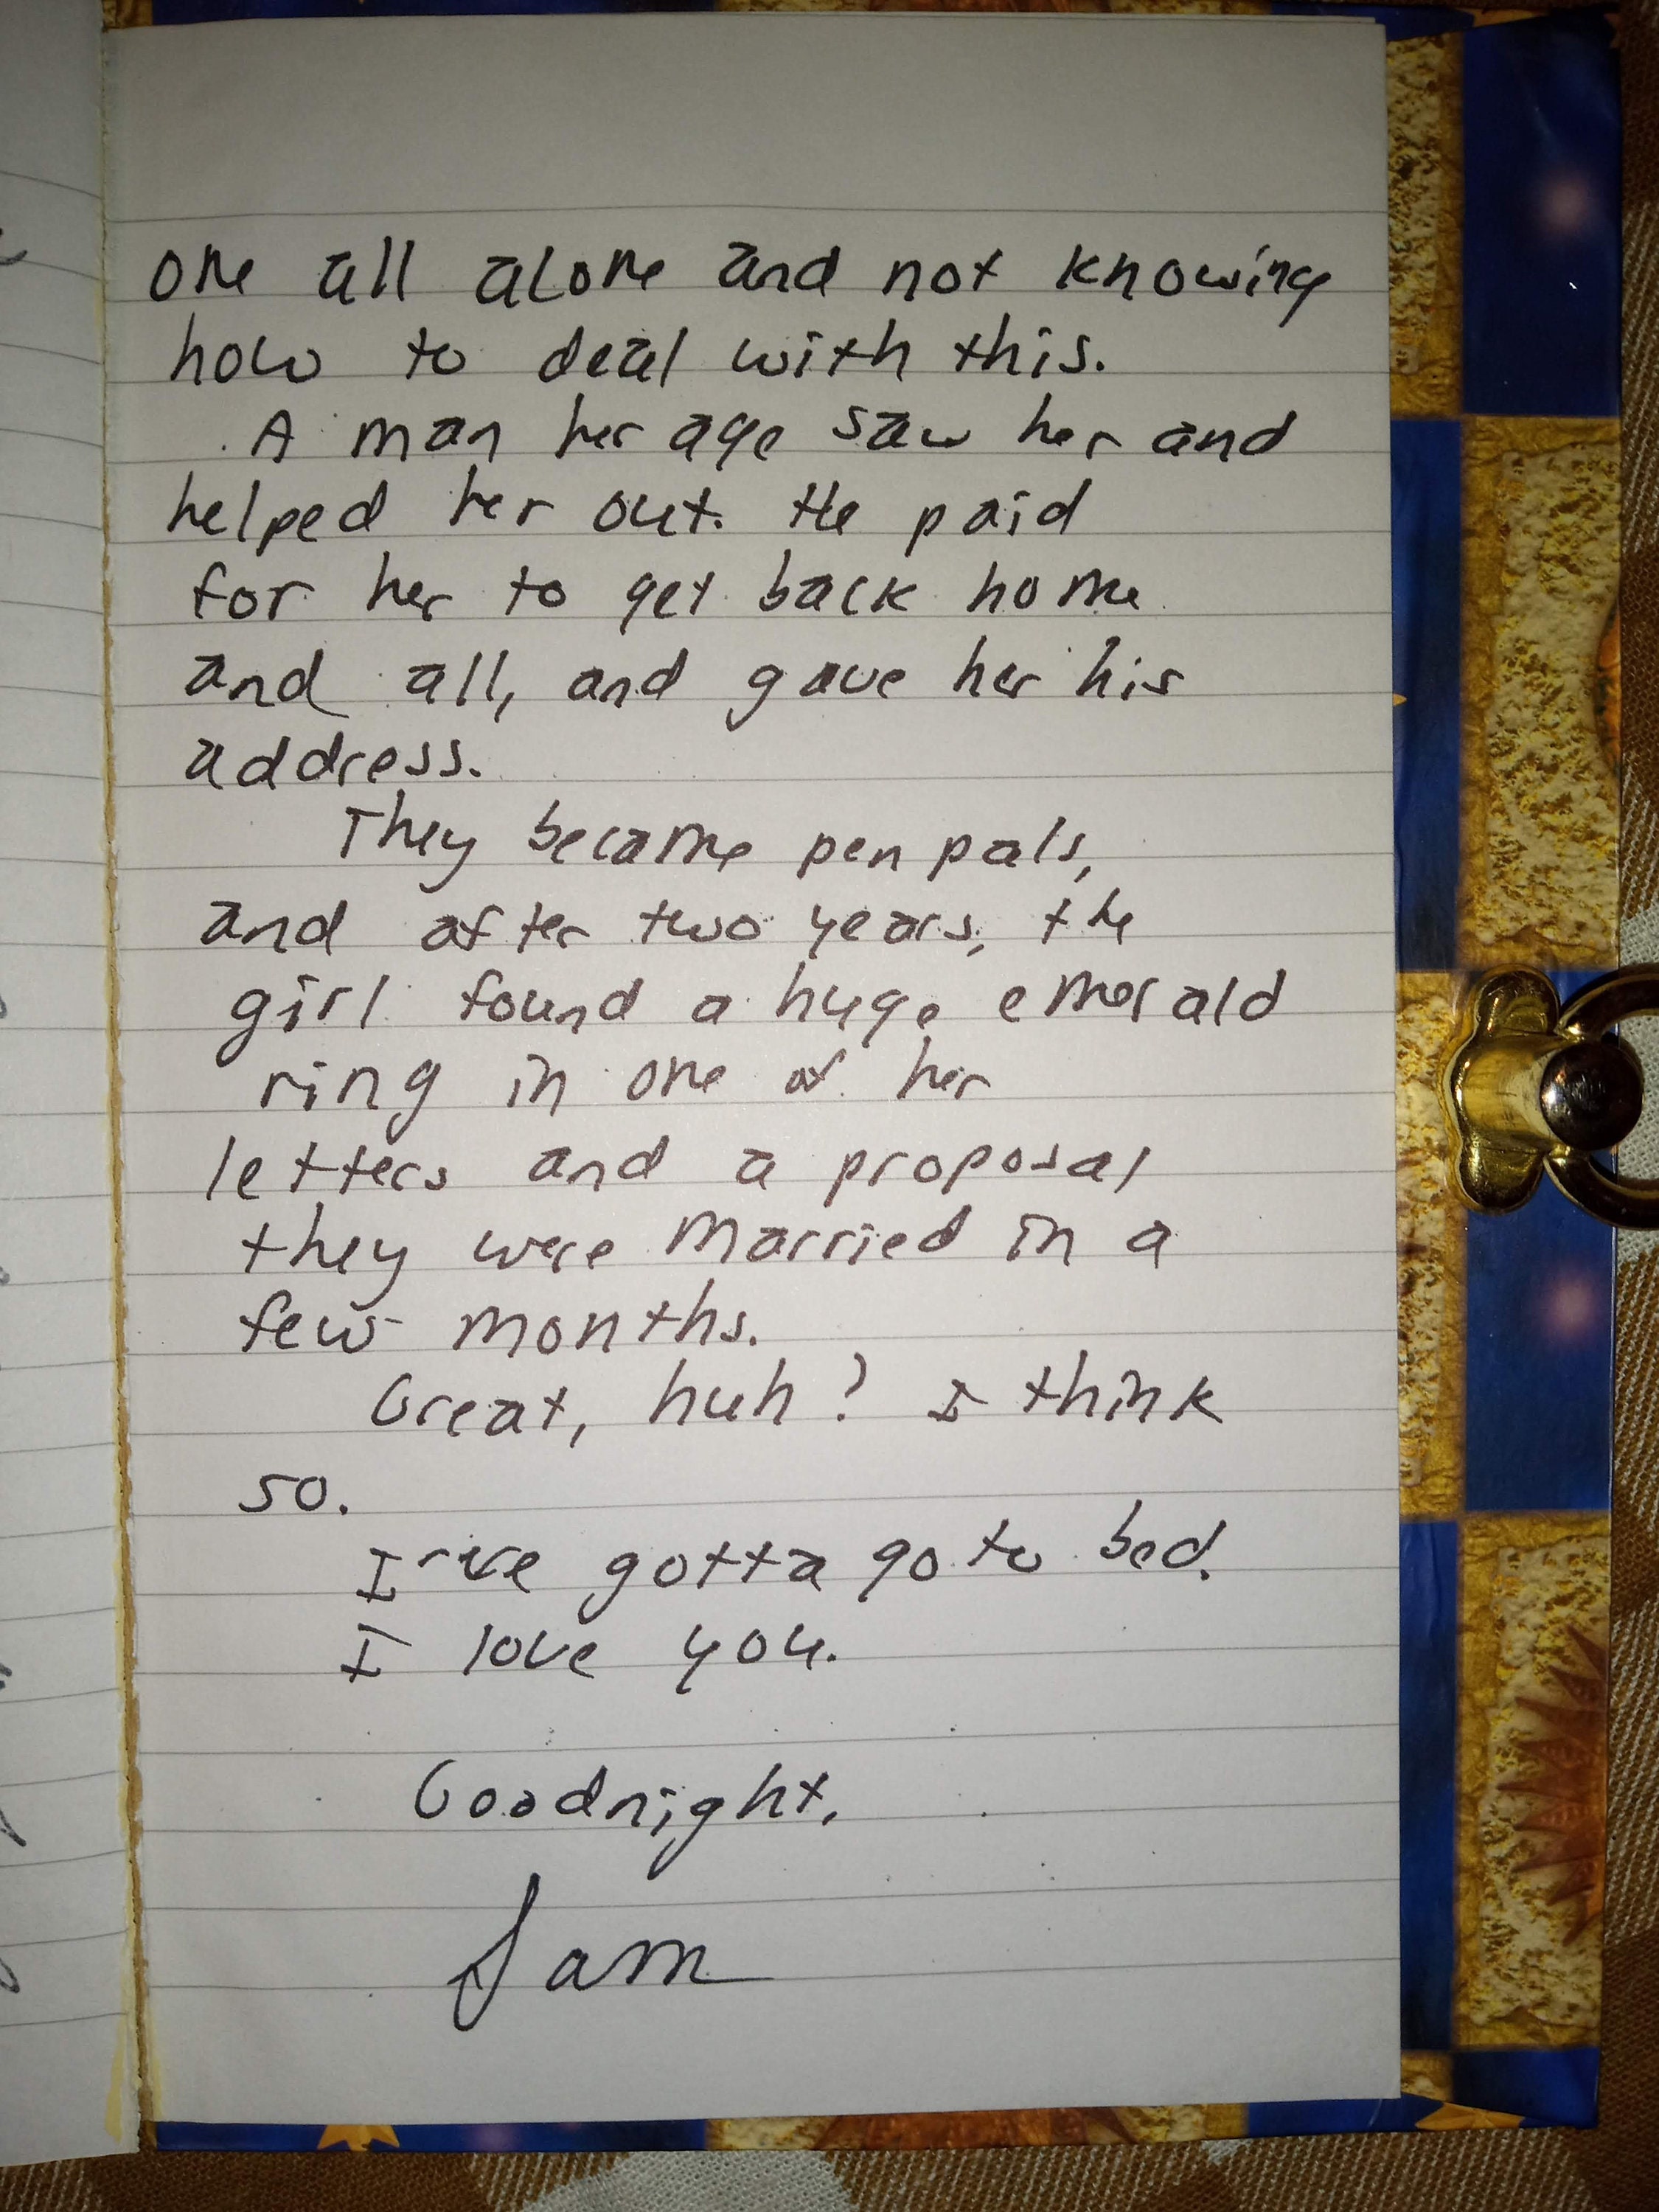 one all alone and not knowing
how to deal with this.
A man her age saw her and
helped her out. He paid
for her to get back home
and all, and gave her his
address.
They became pen pals,
and after two years, the
girl found a huge emerald
ring in one of her
letters and a proposal
they were married in a
few months.
Great, huh? I think
so.
I've gotta go to bed.
I love you.
Goodnight,
Sam